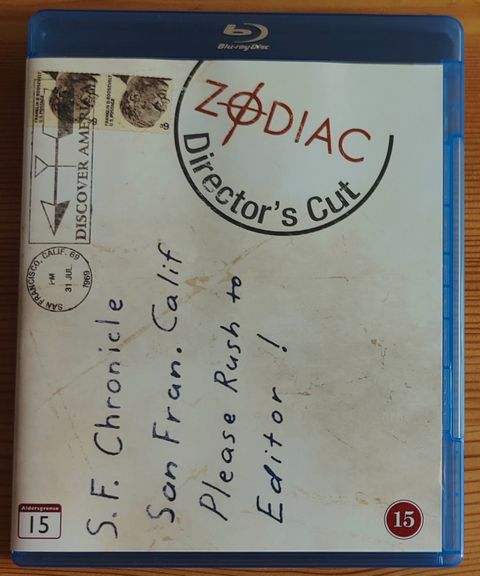 Blu-ray Disc
ZODIAC
Director's Cut
FRANKLIN D. ROOSEVELT
U.S. POSTAGE
6¢
FRANKLIN D. ROOSEVELT
U.S. POSTAGE
6¢
DISCOVER AMERICA
SAN FRANCISCO, CALIF. 69
PM
31 JUL
1969
S.F. Chronicle
San Fran. Calif
Please Rush to
Editor !
Aldersgrense
15
15